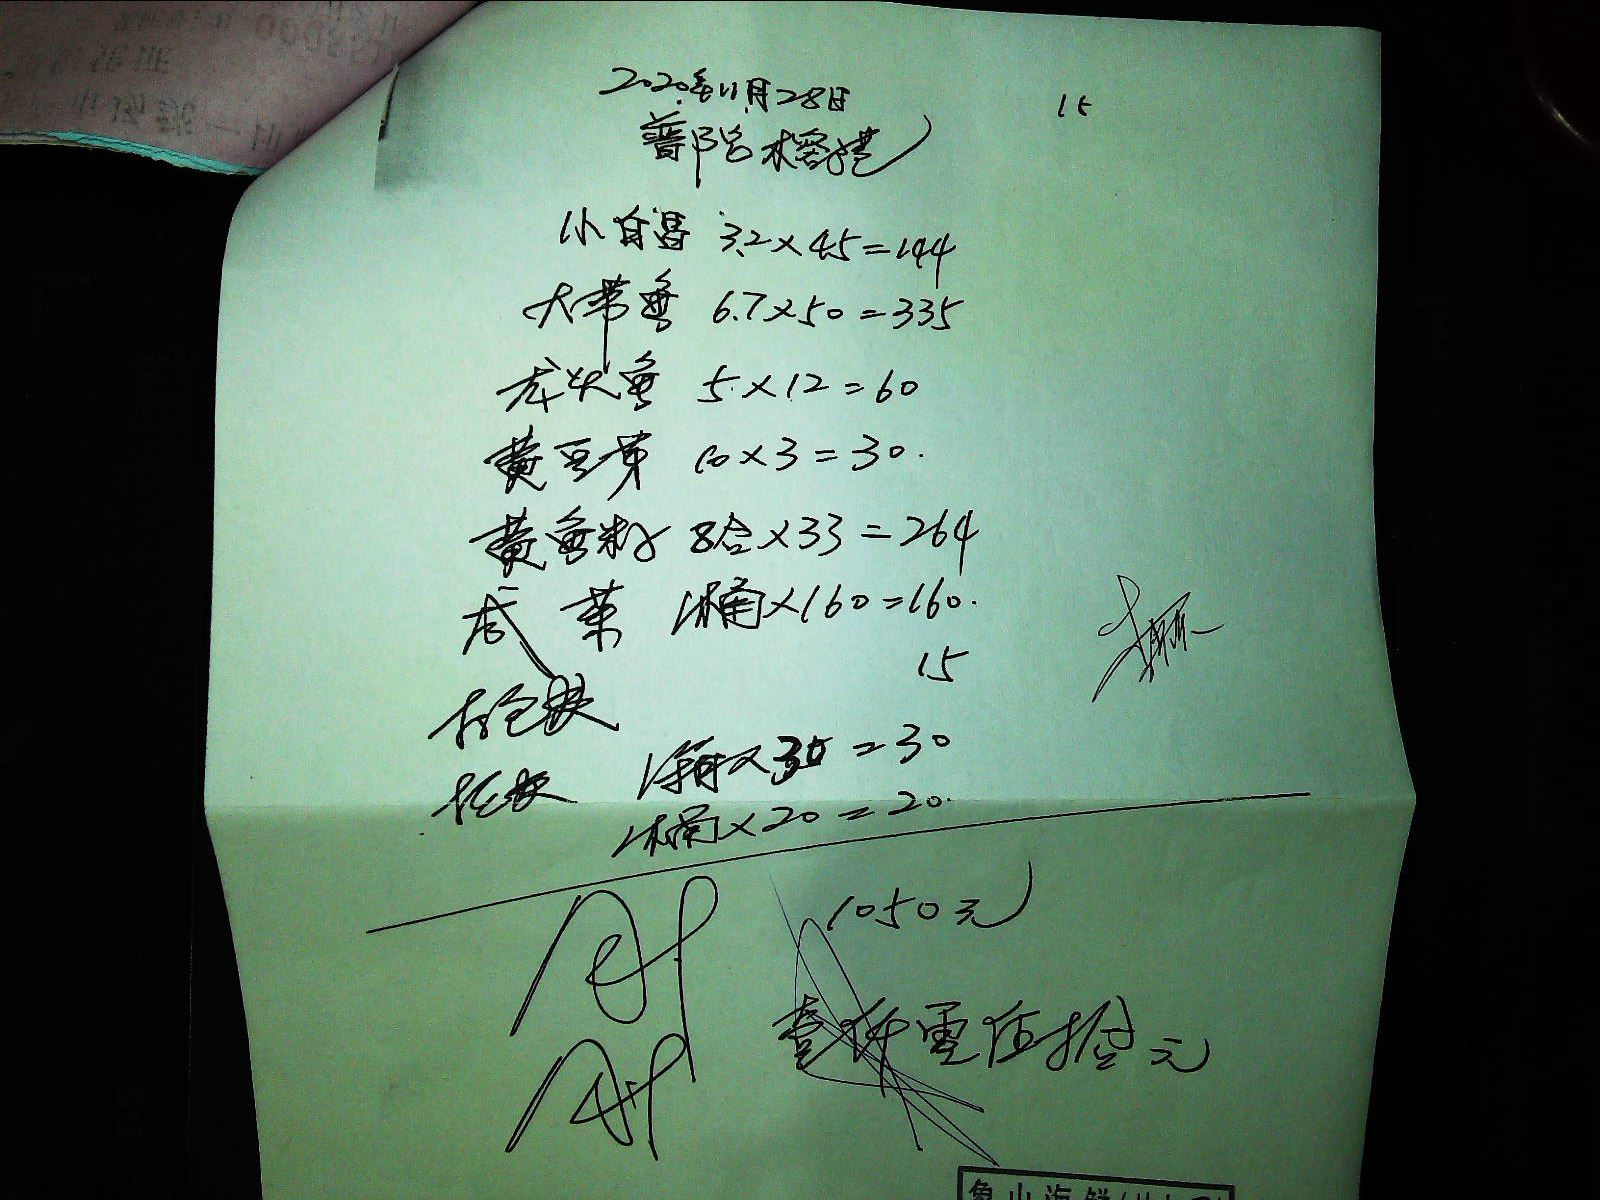 2020年11月28日
15
普陀木客港
小白昌 3.2×45=144
大带鱼 6.7×50=335
龙头鱼 5×12=60
黄豆芽 10×3=30.
黄鱼籽 8合×33=264
咸菜 1桶×160=160.
15
1箱×30=30
1桶×20=20.
1050元
壹仟零伍拾元
象山海鲜